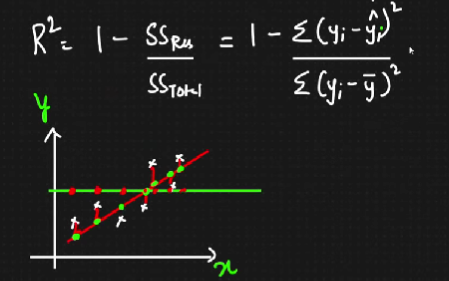 R² = 1 - SS_Res / SS_Total = 1 - Σ(yᵢ - ŷᵢ)² / Σ(yᵢ - ȳ)²
y
x